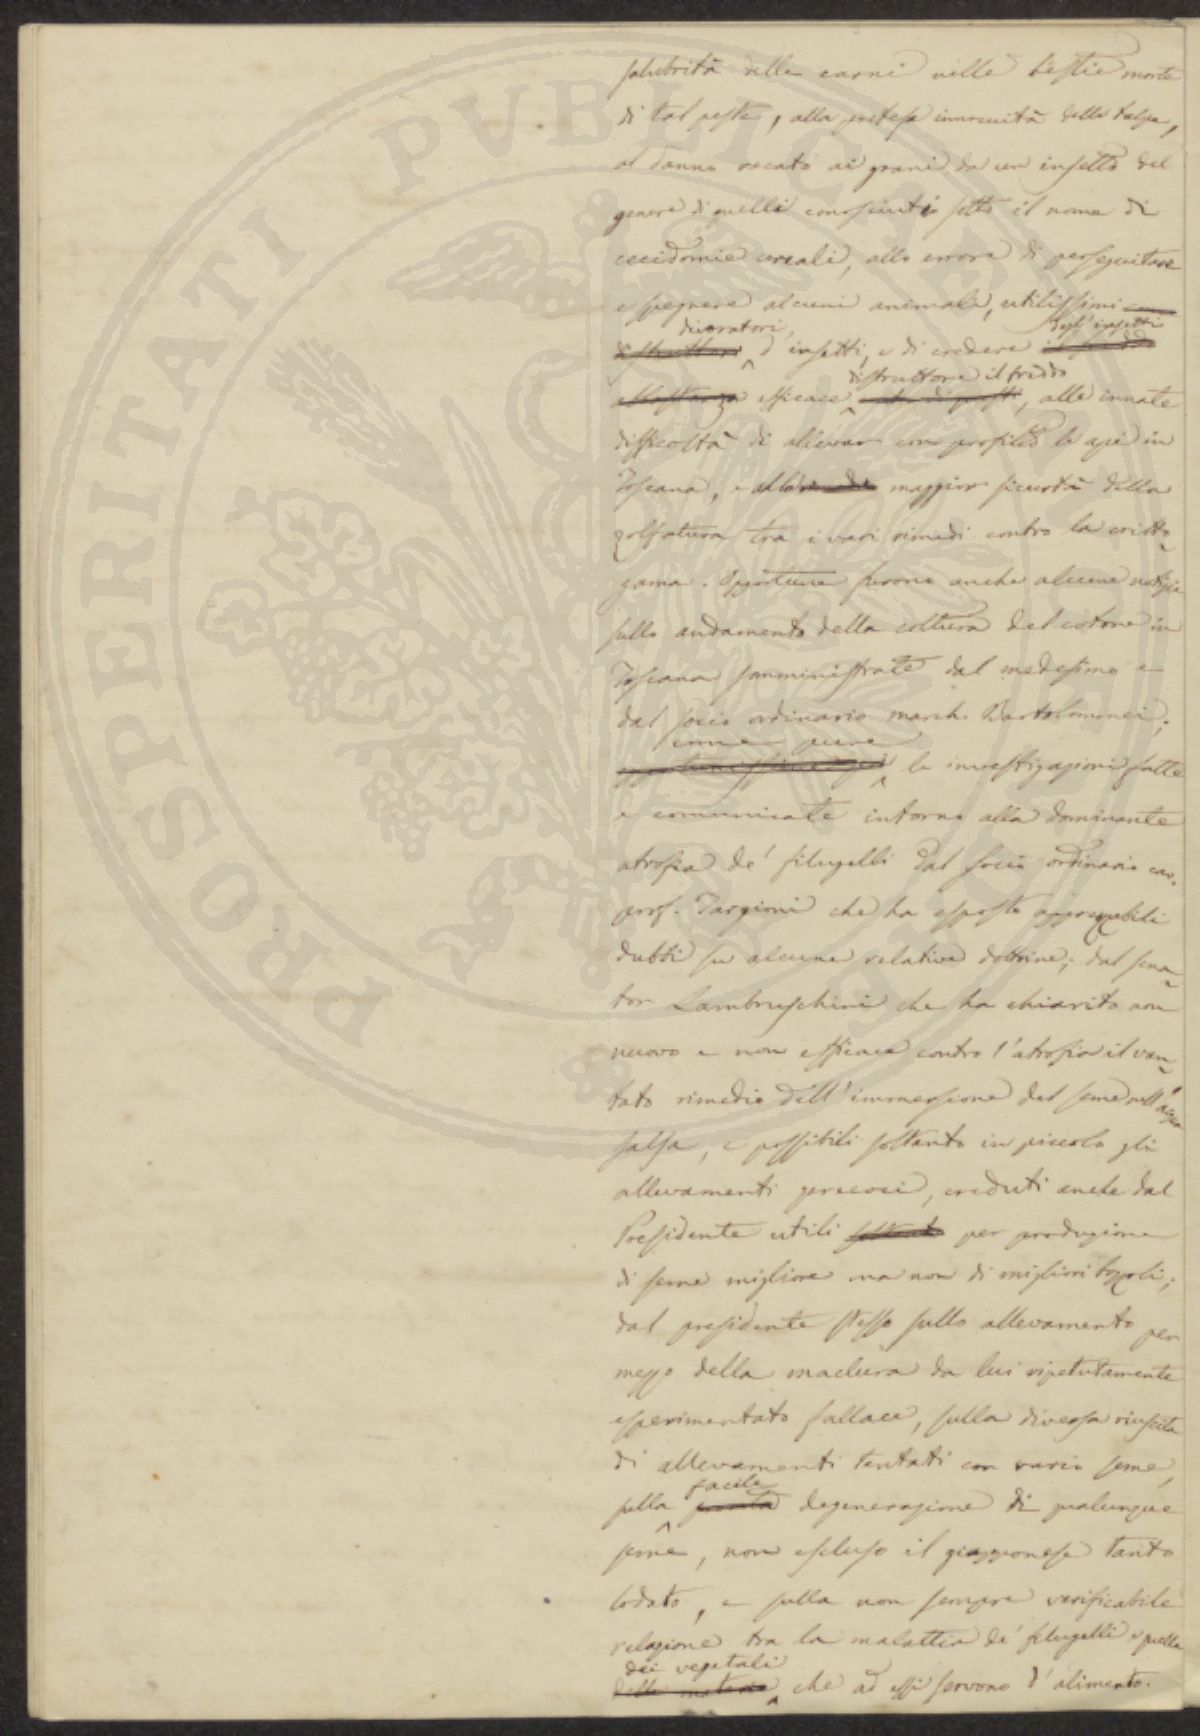 salubrità delle carni nelle bestie morte
di tal peste, alla pretesa innocuità della talpa,
al danno recato ai grani da un insetto del
genere di quelli conosciuti sotto il nome di
cecidomie cereali, allo errore di perseguitare
e spegnere alcuni animali, utilissimi
divoratori,
distruttori d'insetti, e di credere il freddo
degl'insetti
abbastanza efficace, alle innate
distruttore il freddo
difficoltà di allevar con profitto le api in
Toscana, e alla maggior sicurtà della
zolfatura tra i vari rimedi contro la critto-
gama. Opportune furono anche alcune notizie
sullo andamento della coltura del cotone in
Toscana somministrate dal medesimo e
dal socio ordinario march. Bartolommei;
come pure
le investigazioni fatte
e comunicate intorno alla dominante
atrofia de' filugelli dal socio ordinario cav.
prof. Targioni che ha esposto apprezzabili
dubbi su alcune relative dottrine; dal sena-
tor Lambruschini che ha chiarito non
nuovo e non efficace contro l'atrofia il van-
tato rimedio dell'immersione del seme nell'acqua
salsa, e possibili soltanto in piccolo gli
allevamenti precoci, creduti anche dal
Presidente utili soltanto per produzione
di seme migliore ma non di migliori bozzoli;
dal presidente stesso sullo allevamento per
mezzo della maclura da lui ripetutamente
esperimentato fallace, sulla diversa riuscita
di allevamenti tentati con vario seme,
facile
sulla pronta degenerazione di qualunque
seme, non escluso il giapponese tanto
lodato, e sulla non sempre verificabile
relazione tra la malattia de' filugelli e quella
dei vegetali
delle materie che ad essi servono d'alimento.
PROSPERITATI PVBLICAE AVGENDAE